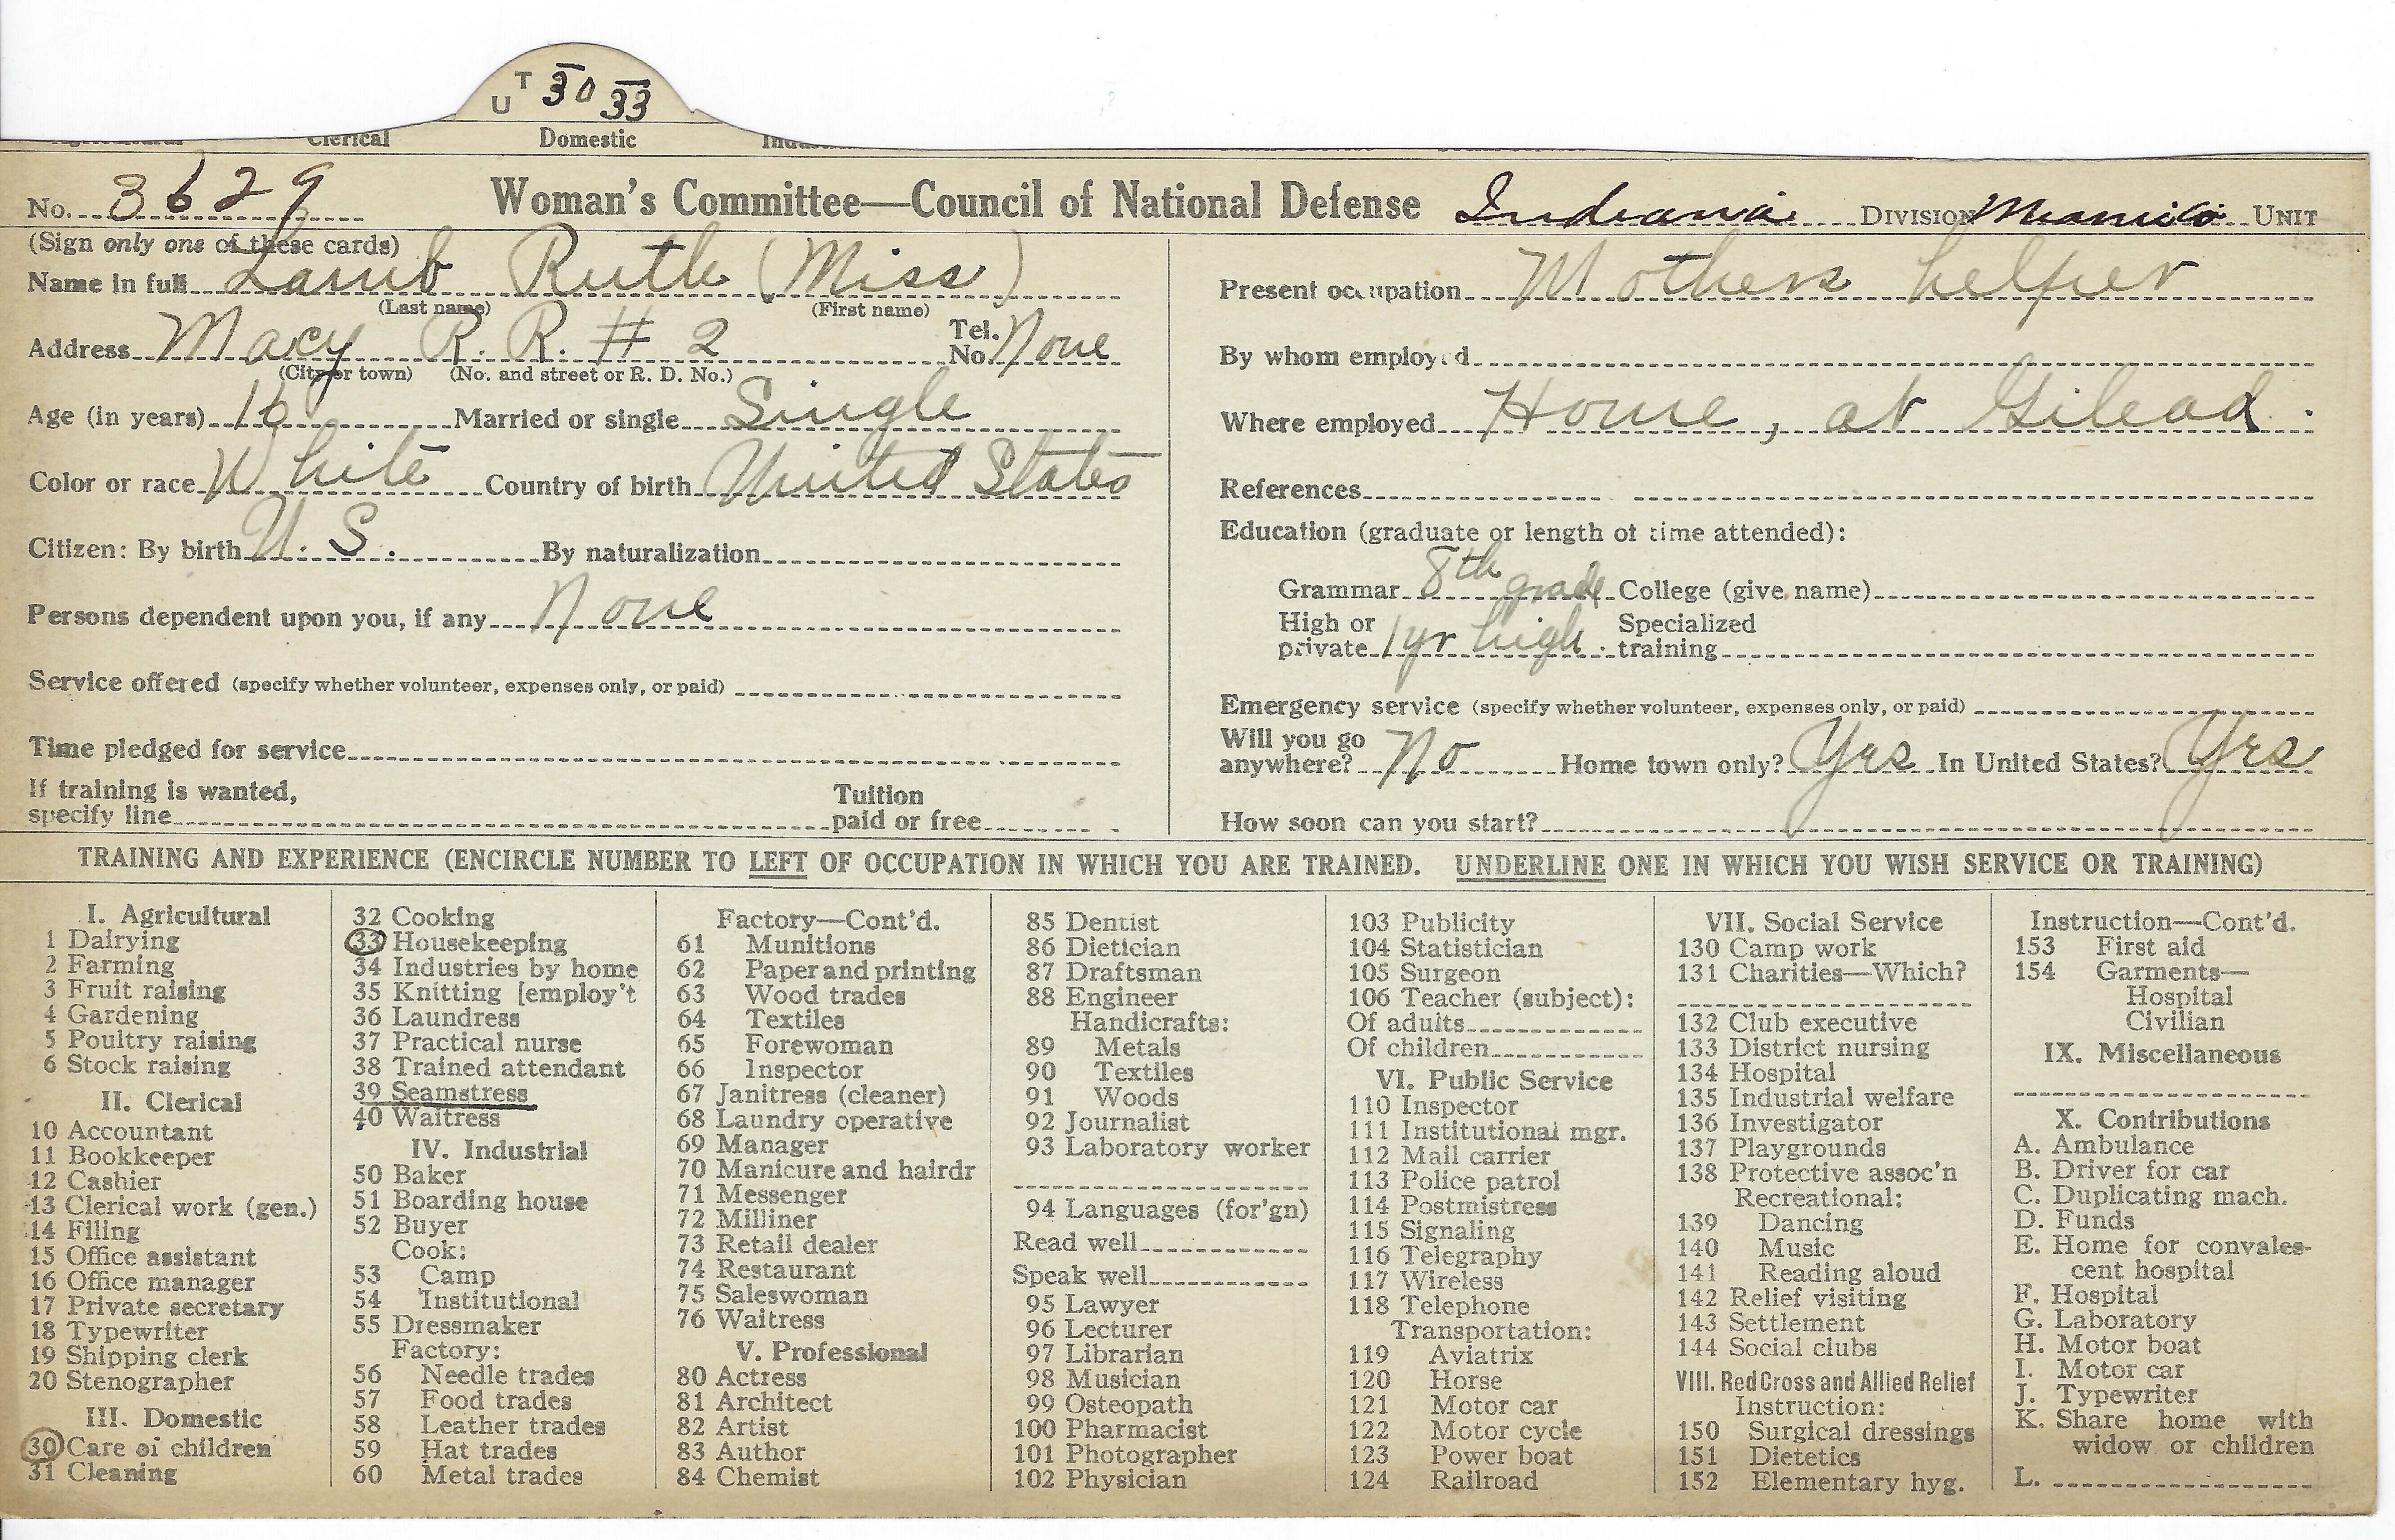 U T 30 33
Clerical Domestic
No. 3629 Woman's Committee—Council of National Defense Indiana DIVISION UNIT
(Sign only one of these cards)
Name in full Lamb Ruth (Miss)
(Last name) (First name)
Address Macy R. R. # 2 Tel. No. None
(City or town) (No. and street or R. D. No.)
Age (in years) 16 Married or single Single
Color or race White Country of birth United States
Citizen: By birth U. S. By naturalization
Persons dependent upon you, if any None
Service offered (specify whether volunteer, expenses only, or paid)
Time pledged for service
If training is wanted,
specify line Tuition paid or free
Present occupation Mothers helper
By whom employed
Where employed Home, at Gilead.
References
Education (graduate or length of time attended):
Grammar 8th grade College (give name)
High or private 1 yr high. Specialized training
Emergency service (specify whether volunteer, expenses only, or paid)
Will you go anywhere? No Home town only? Yes In United States? Yes
How soon can you start?
TRAINING AND EXPERIENCE (ENCIRCLE NUMBER TO LEFT OF OCCUPATION IN WHICH YOU ARE TRAINED. UNDERLINE ONE IN WHICH YOU WISH SERVICE OR TRAINING)
I. Agricultural
1 Dairying
2 Farming
3 Fruit raising
4 Gardening
5 Poultry raising
6 Stock raising
II. Clerical
10 Accountant
11 Bookkeeper
12 Cashier
13 Clerical work (gen.)
14 Filing
15 Office assistant
16 Office manager
17 Private secretary
18 Typewriter
19 Shipping clerk
20 Stenographer
III. Domestic
30 Care of children
31 Cleaning
32 Cooking
33 Housekeeping
34 Industries by home
35 Knitting [employ't
36 Laundress
37 Practical nurse
38 Trained attendant
39 Seamstress
40 Waitress
IV. Industrial
50 Baker
51 Boarding house
52 Buyer
Cook:
53 Camp
54 Institutional
55 Dressmaker
Factory:
56 Needle trades
57 Food trades
58 Leather trades
59 Hat trades
60 Metal trades
Factory—Cont'd.
61 Munitions
62 Paper and printing
63 Wood trades
64 Textiles
65 Forewoman
66 Inspector
67 Janitress (cleaner)
68 Laundry operative
69 Manager
70 Manicure and hairdr
71 Messenger
72 Milliner
73 Retail dealer
74 Restaurant
75 Saleswoman
76 Waitress
V. Professional
80 Actress
81 Architect
82 Artist
83 Author
84 Chemist
85 Dentist
86 Dietician
87 Draftsman
88 Engineer
Handicrafts:
89 Metals
90 Textiles
91 Woods
92 Journalist
93 Laboratory worker
94 Languages (for'gn)
Read well
Speak well
95 Lawyer
96 Lecturer
97 Librarian
98 Musician
99 Osteopath
100 Pharmacist
101 Photographer
102 Physician
103 Publicity
104 Statistician
105 Surgeon
106 Teacher (subject):
Of adults
Of children
VI. Public Service
110 Inspector
111 Institutional mgr.
112 Mail carrier
113 Police patrol
114 Postmistress
115 Signaling
116 Telegraphy
117 Wireless
118 Telephone
Transportation:
119 Aviatrix
120 Horse
121 Motor car
122 Motor cycle
123 Power boat
124 Railroad
VII. Social Service
130 Camp work
131 Charities—Which?
132 Club executive
133 District nursing
134 Hospital
135 Industrial welfare
136 Investigator
137 Playgrounds
138 Protective assoc'n
Recreational:
139 Dancing
140 Music
141 Reading aloud
142 Relief visiting
143 Settlement
144 Social clubs
VIII. Red Cross and Allied Relief
Instruction:
150 Surgical dressings
151 Dietetics
152 Elementary hyg.
Instruction—Cont'd.
153 First aid
154 Garments—
Hospital
Civilian
IX. Miscellaneous
X. Contributions
A. Ambulance
B. Driver for car
C. Duplicating mach.
D. Funds
E. Home for convales-
cent hospital
F. Hospital
G. Laboratory
H. Motor boat
I. Motor car
J. Typewriter
K. Share home with
widow or children
L.